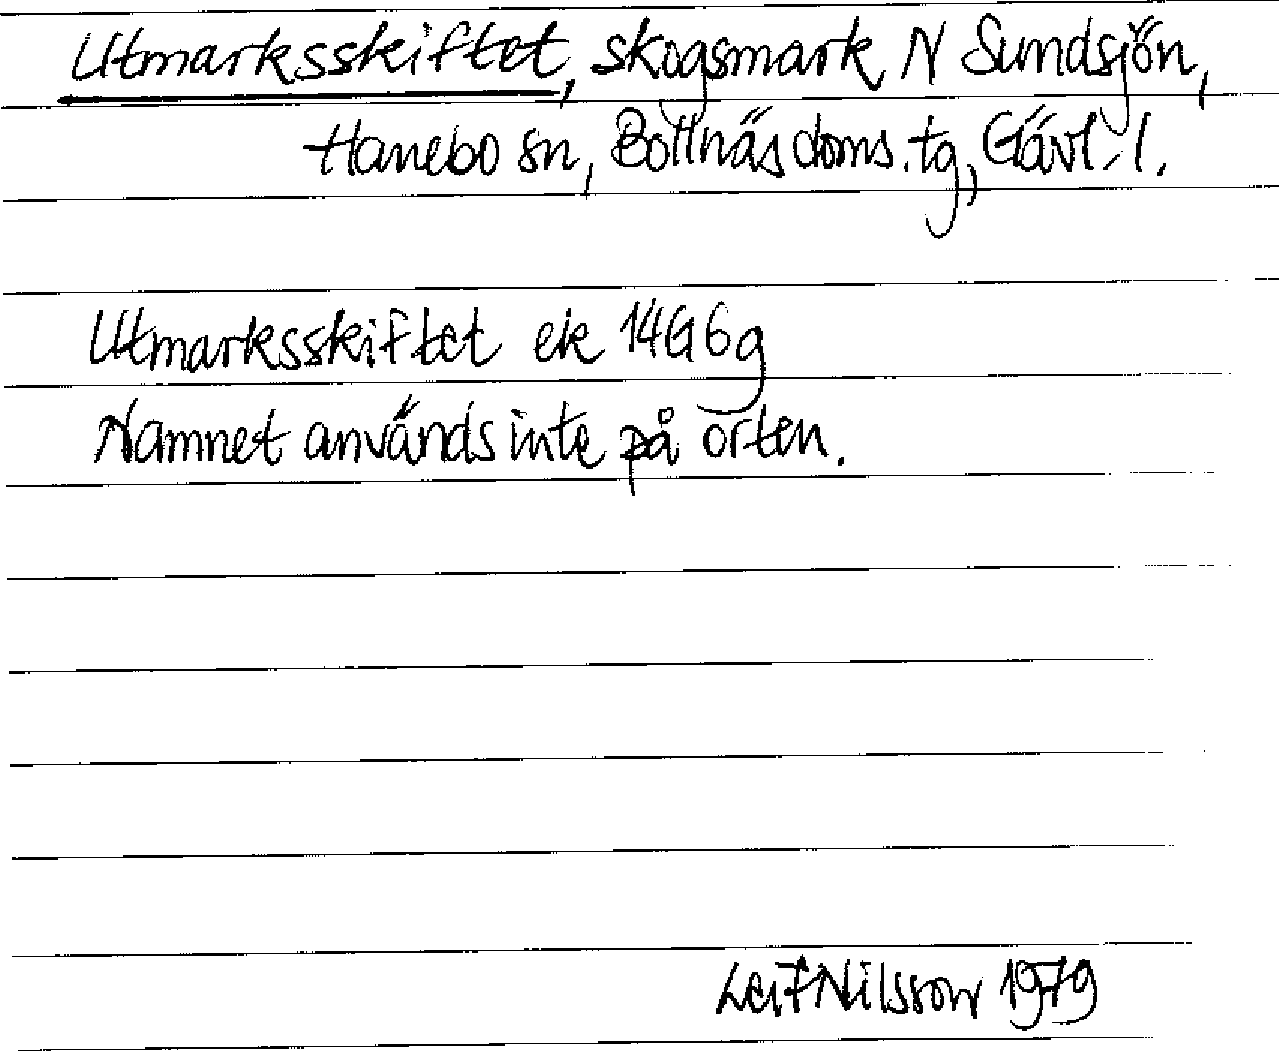 Utmarksskiftet, skogsmark N Sundsjön,
Hanebo sn, Bollnäs doms.tg, Gävl. l.
Utmarksskiftet ek 14G6g
Namnet används inte på orten.
Leif Nilsson 1979